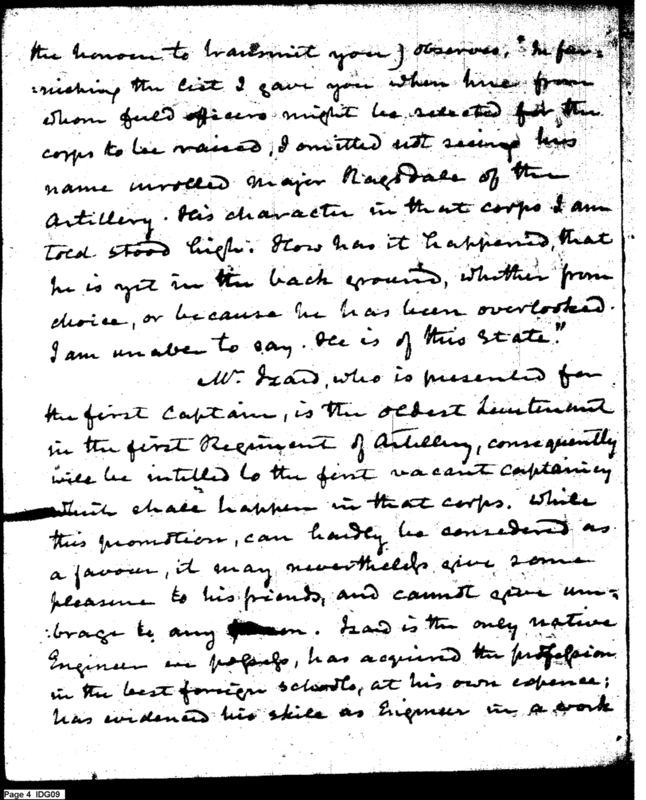 the honour to transmit you) observes, "In fur=
=nishing the list I gave you when here from
whom field officers might be selected for the
corps to be raised, I omitted not seeing his
name inrolled Major Ragsdale of the
Artillery. His character in that corps I am
told stood high. How has it happened, that
he is yet in the back ground, whether from
choice, or because he has been overlooked.
I am unable to say. He is of this State."
Mr. Izard, who is presented for
the first Captain, is the oldest Lieutenant
in the first Regiment of Artillery, consequently
will be intitled to the first vacant captaincy
which shall happen in that corps. While
this promotion, can hardly be considered as
a favour, it may nevertheless give some
pleasure to his friends, and cannot give um=
:brage to any . Izard is the only native
Engineer we possess, has acquired the profession
in the best foreign schools, at his own expence;
has evidenced his skill as Engineer in a work
Page 4 IDG09